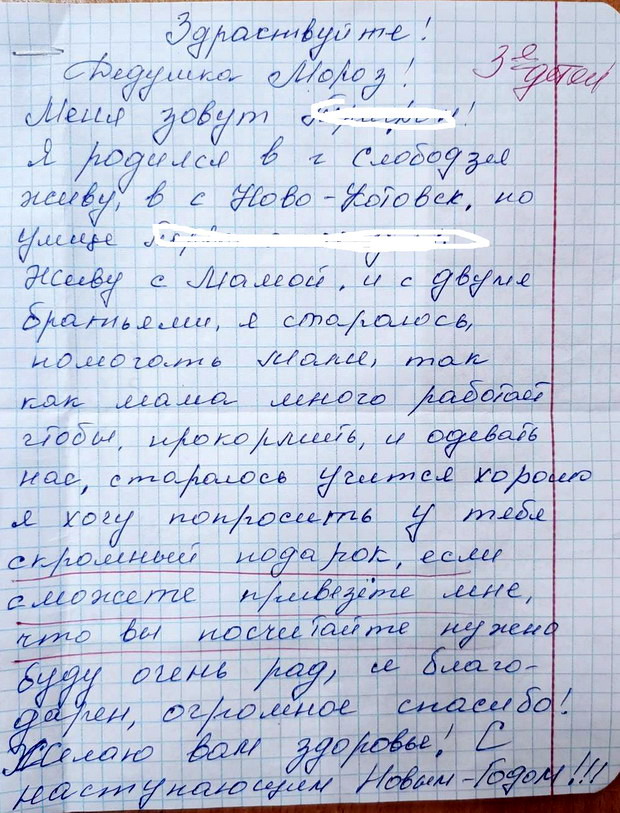 Здраствуйте!
Дедушка Мороз!
3е детей
Меня зовут
Я родился в г Слободзея
живу, в с Ново-Котовск, по
улице
Живу с Мамой, и с двумя
братьями, я стараюсь,
помогать маме, так
как мама много работает
чтобы, прокормить, и одевать
нас, стараюсь учится хорошо
я хочу попросить у тебя
скромный подарок, если
сможете привезёте мне,
что вы посчитайте нужно
буду очень рад, и благо-
дарен, огромное спасибо!
Желаю вам здоровье! С
наступающим Новым-Годом!!!